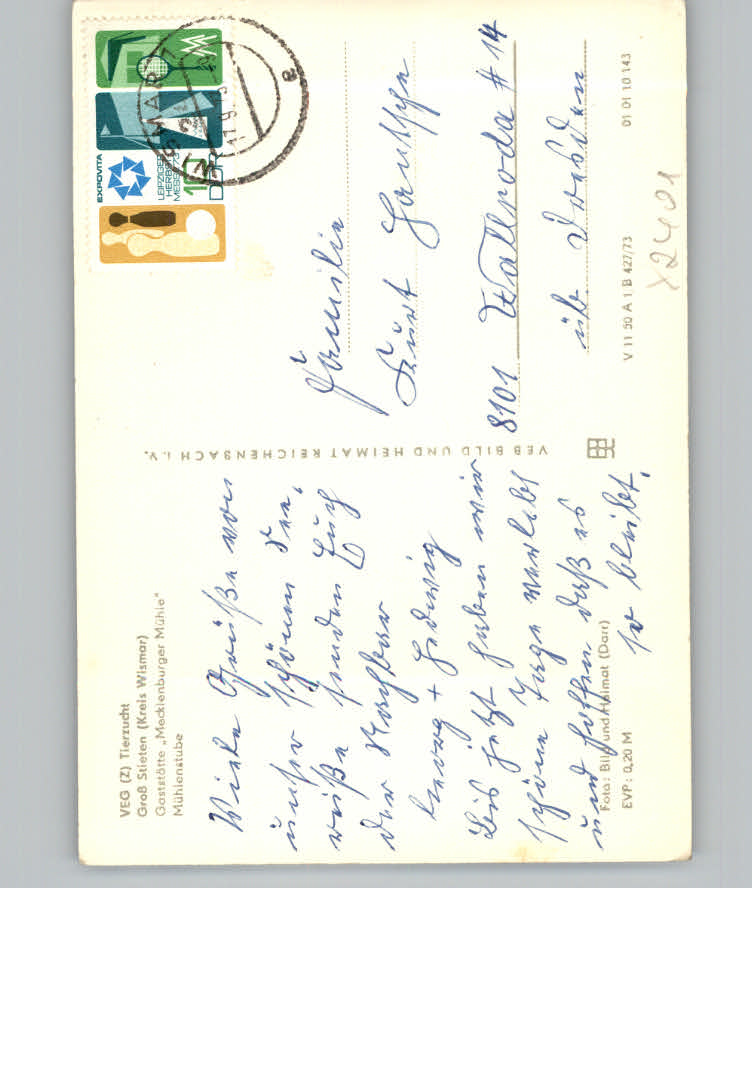 VEG (Z) Tierzucht
Groß Stieten (Kreis Wismar)
Gaststätte „Mecklenburger Mühle"
Mühlenstube
Viele Grüße von
unser schönen
senden Euch
der Nachbar
+ Hedwig
Bis jetzt haben wir
schöne Tage verlebt
und hoffen daß es
so bleibt.
Foto: Bild und Heimat (Darr)
EVP: 0,20 M
VEB BILD UND HEIMAT REICHENBACH i. V.
EXPOVITA
LEIPZIGER
HERBST
MESSE 73
10
DDR
WISMAR 1
a
Familie
Kurt
8101 Wallroda # 14
üb Dresden
V 11 50 A 1 B 427/73
01 01 10 143
X2401